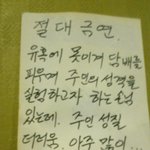 절대금연.
유혹에 못이겨 담배를
피우게 주인의 성격을
실험하고자 하는 손님
있는데. 주인 성질
더러움. 아주 많이...